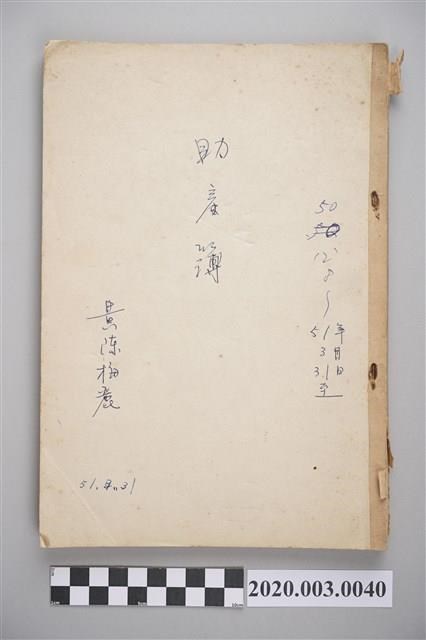 50
12
8
〜
51年
3月
31日
至
助產簿
黃陳梅麗
51.3.31
2020.003.0040